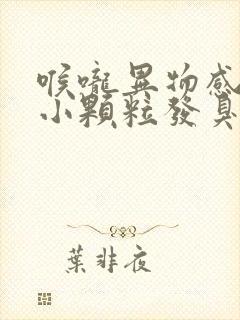 喉嚨異物感
小顆粒發臭
葉非夜